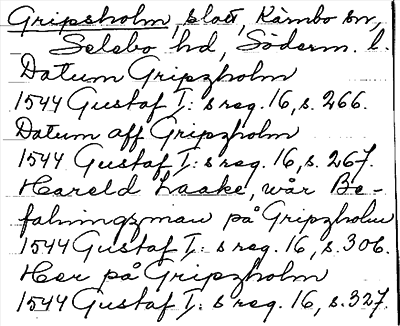 Gripsholm, slott, Kärnbo sn,
Selebo hd, Söderm. l.
Datum Gripzholm
1544 Gustaf I: s reg. 16, s. 266.
Datum aff Gripzholm
1544 Gustaf I: s reg. 16, s. 267.
Hareld Laake, wår Be-
falningzman på Gripzholm
1544 Gustaf I: s reg. 16, s. 306.
Her på Gripzholm
1544 Gustaf I: s reg. 16, s. 327.